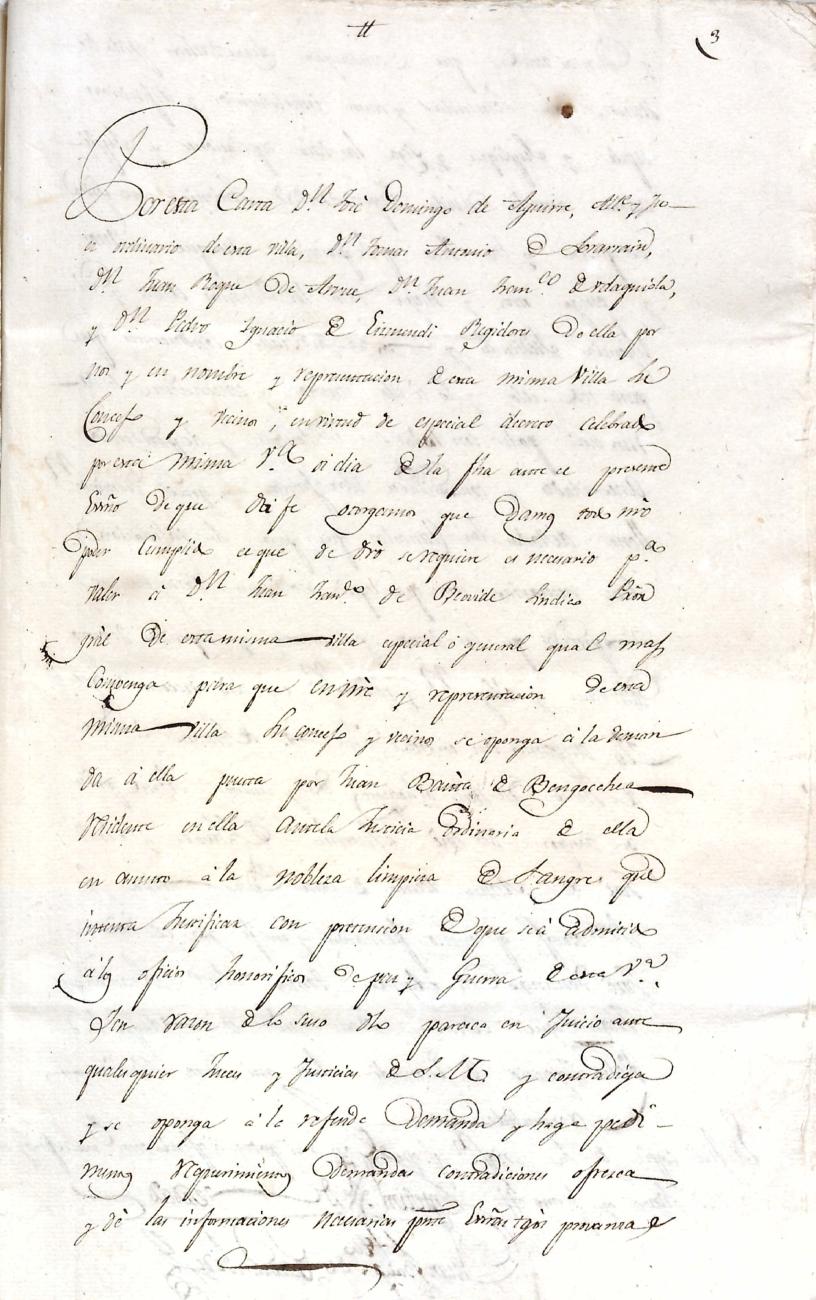 tt
3
Por esta Carta Dⁿ José Domingo de Aguirre, Alle. y Ju—
ez ordinario de esta villa, Dⁿ Tomas Antonio de Larrain,
Dⁿ Juan Roque de Arrue, Dⁿ Juan Franco de Urdapileta,
y Dⁿ Pedro Ignacio de Eizmendi Regidores de ella por
nos y en nombre y representacion de esta misma Villa su
Concejo y vecinos, en virtud de especial decreto celebrado
por esta misma Vª oi dia de la fha ante el presente
Essno de que da fe otorgamos que damos todo nro
poder Cumplido el que de dro se requiere es necesario pª
valer á Dⁿ Juan Franco de Beovide Sindico Prõr
gral de esta misma villa especial ó general qual mas
Convenga para que en nre y representacion de esta
misma villa su concejo y vecinos se oponga á la deman
da á ella puesta por Juan Bauta de Bengoechea
residente en ella Ante la Justicia Ordinaria de ella
en asunto á la nobleza limpieza de Sangre que
intenta Justificar con pretension de que sea admitido
á los oficios honorificos de paz y Guerra de esta Vª.
Y en razon de lo suso dho paresca en Juicio ante
qualesquier Jueces y Justicias de S. M. y contradiga
y se oponga á la refenda Demanda y haga pedi—
mentos requerimientos demandas contradiciones ofresca
y dé las informaciones necesarias pnte Essñas tgõs provanza de